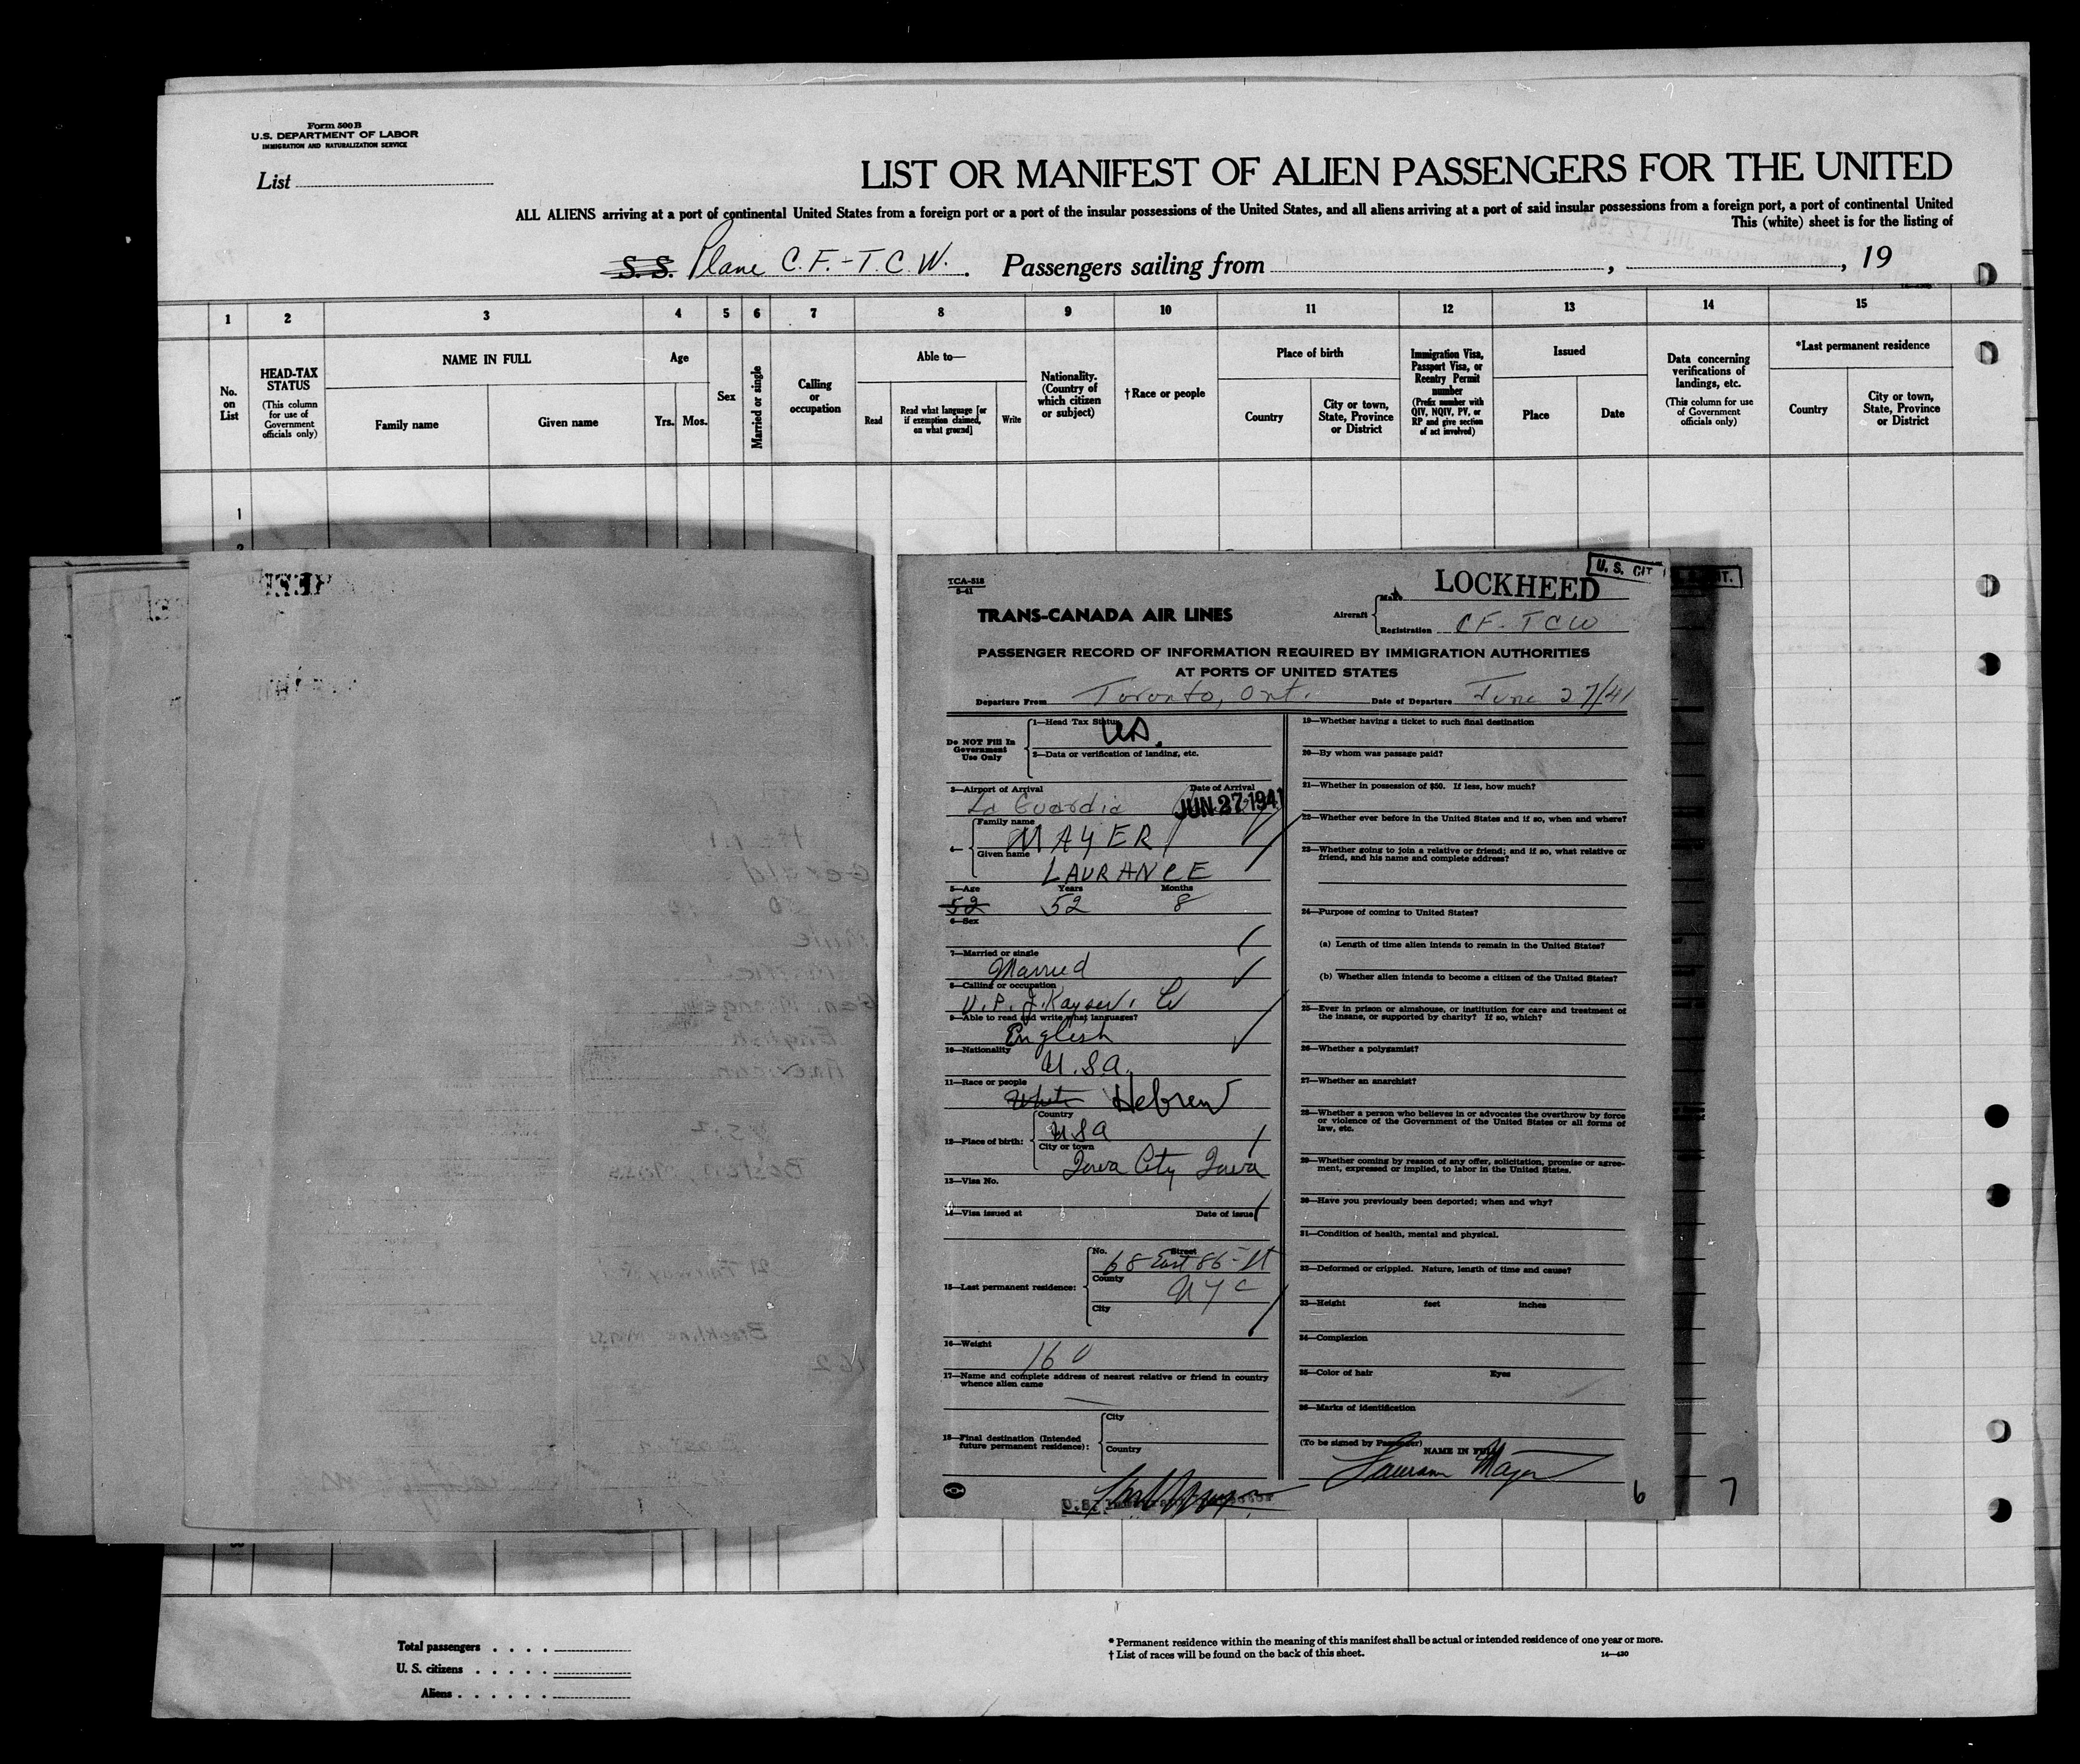 Form 500B
U.S. DEPARTMENT OF LABOR
IMMIGRATION AND NATURALIZATION SERVICE
List
LIST OR MANIFEST OF ALIEN PASSENGERS FOR THE UNITED
ALL ALIENS arriving at a port of continental United States from a foreign port or a port of the insular possessions of the United States, and all aliens arriving at a port of said insular possessions from a foreign port, a port of continental United
This (white) sheet is for the listing of
S.S. Plane C.F.-T.C.W. Passengers sailing from , , 19
1 2 3 4 5 6 7 8 9 10 11 12 13 14 15
No. on List
HEAD-TAX STATUS
(This column for use of Government officials only)
NAME IN FULL
Family name Given name
Age
Yrs. Mos.
Sex
Married or single
Calling or occupation
Able to—
Read
Read what language [or if exemption claimed, on what ground]
Write
Nationality. (Country of which citizen or subject)
†Race or people
Place of birth
Country
City or town, State, Province or District
Immigration Visa, Passport Visa, or Reentry Permit number
(Prefix number with QIV, NQIV, PV, or RP and give section of act involved)
Issued
Place Date
Data concerning verifications of landings, etc.
(This column for use of Government officials only)
*Last permanent residence
Country
City or town, State, Province or District
1
2
TCA-518
5-41
TRANS-CANADA AIR LINES
U. S. CIT.
Aircraft
Make LOCKHEED
Registration CF-TCW
PASSENGER RECORD OF INFORMATION REQUIRED BY IMMIGRATION AUTHORITIES
AT PORTS OF UNITED STATES
Departure From Toronto, Ont. Date of Departure June 27/41
Do NOT Fill In Government Use Only
1—Head Tax Status
2—Data or verification of landing, etc.
3—Airport of Arrival Date of Arrival
La Guardia JUN 27 1941
4—
Family name
MAYER
Given name
LAURANCE
5—Age Years Months
52 52 8
6—Sex
7—Married or single
Married
8—Calling or occupation
V.P. J. Kayser
9—Able to read and write what languages?
English
10—Nationality
U.S.A.
11—Race or people
White Hebrew
12—Place of birth:
Country
USA
City or town
Iowa City Iowa
13—Visa No.
14—Visa issued at Date of issue
15—Last permanent residence:
No. Street
68 East 86 St
County
NYC
City
16—Weight
160
17—Name and complete address of nearest relative or friend in country whence alien came
18—Final destination (Intended future permanent residence):
City
Country
19—Whether having a ticket to such final destination
20—By whom was passage paid?
21—Whether in possession of $50. If less, how much?
22—Whether ever before in the United States and if so, when and where?
23—Whether going to join a relative or friend; and if so, what relative or
friend, and his name and complete address?
24—Purpose of coming to United States?
(a) Length of time alien intends to remain in the United States?
(b) Whether alien intends to become a citizen of the United States?
25—Ever in prison or almshouse, or institution for care and treatment of
the insane, or supported by charity? If so, which?
26—Whether a polygamist?
27—Whether an anarchist?
28—Whether a person who believes in or advocates the overthrow by force
or violence of the Government of the United States or all forms of
law, etc.
29—Whether coming by reason of any offer, solicitation, promise or agree-
ment, expressed or implied, to labor in the United States.
30—Have you previously been deported; when and why?
31—Condition of health, mental and physical.
32—Deformed or crippled. Nature, length of time and cause?
33—Height feet inches
34—Complexion
35—Color of hair Eyes
36—Marks of identification
(To be signed by Passenger) NAME IN FULL
Laurance Mayer
6
7
Total passengers
U. S. citizens
Aliens
* Permanent residence within the meaning of this manifest shall be actual or intended residence of one year or more.
† List of races will be found on the back of this sheet.
14—430